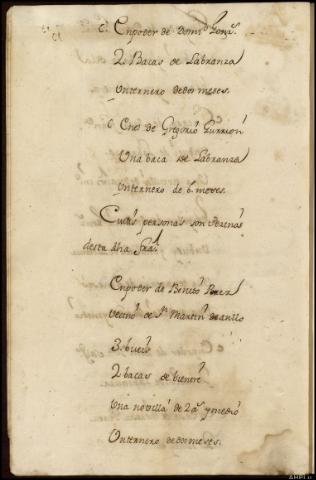 Enpoder de Domi.º Gonz.
2 Bacas de Labranza
Unternero de dos meses.
En el de Gregorio Gurrion
Una baca de Labranza
Unternero de 6 meses.
Cuias personas son vecinas
desta dha
Enpoder de Benito Perez
vecino de Sn Martin
3 bueis
2 bacas de bientre
Una novilla de 2 as y medio
Unternero de dos meses.